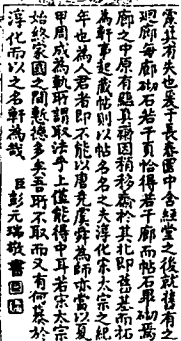 慮其有失也爰于長春園中含經堂之後就舊有之
迴廊每廊砌石若干頁恰得若干廊而帖石畢砌焉
廊之中原有蘊真齋因稍移齋於其北即舊基而拓
為軒事起藏帖則以帖名名之夫淳化宋太宗之紀
年也為人君者即不能以唐堯虞舜為師亦當以夏
甲周成為軌所謂取法乎上僅能得中耳若宋太宗
始終家國之間慙德多矣吾所不取而又有何慕於
淳化而以之名軒為哉 臣彭元瑞敬書